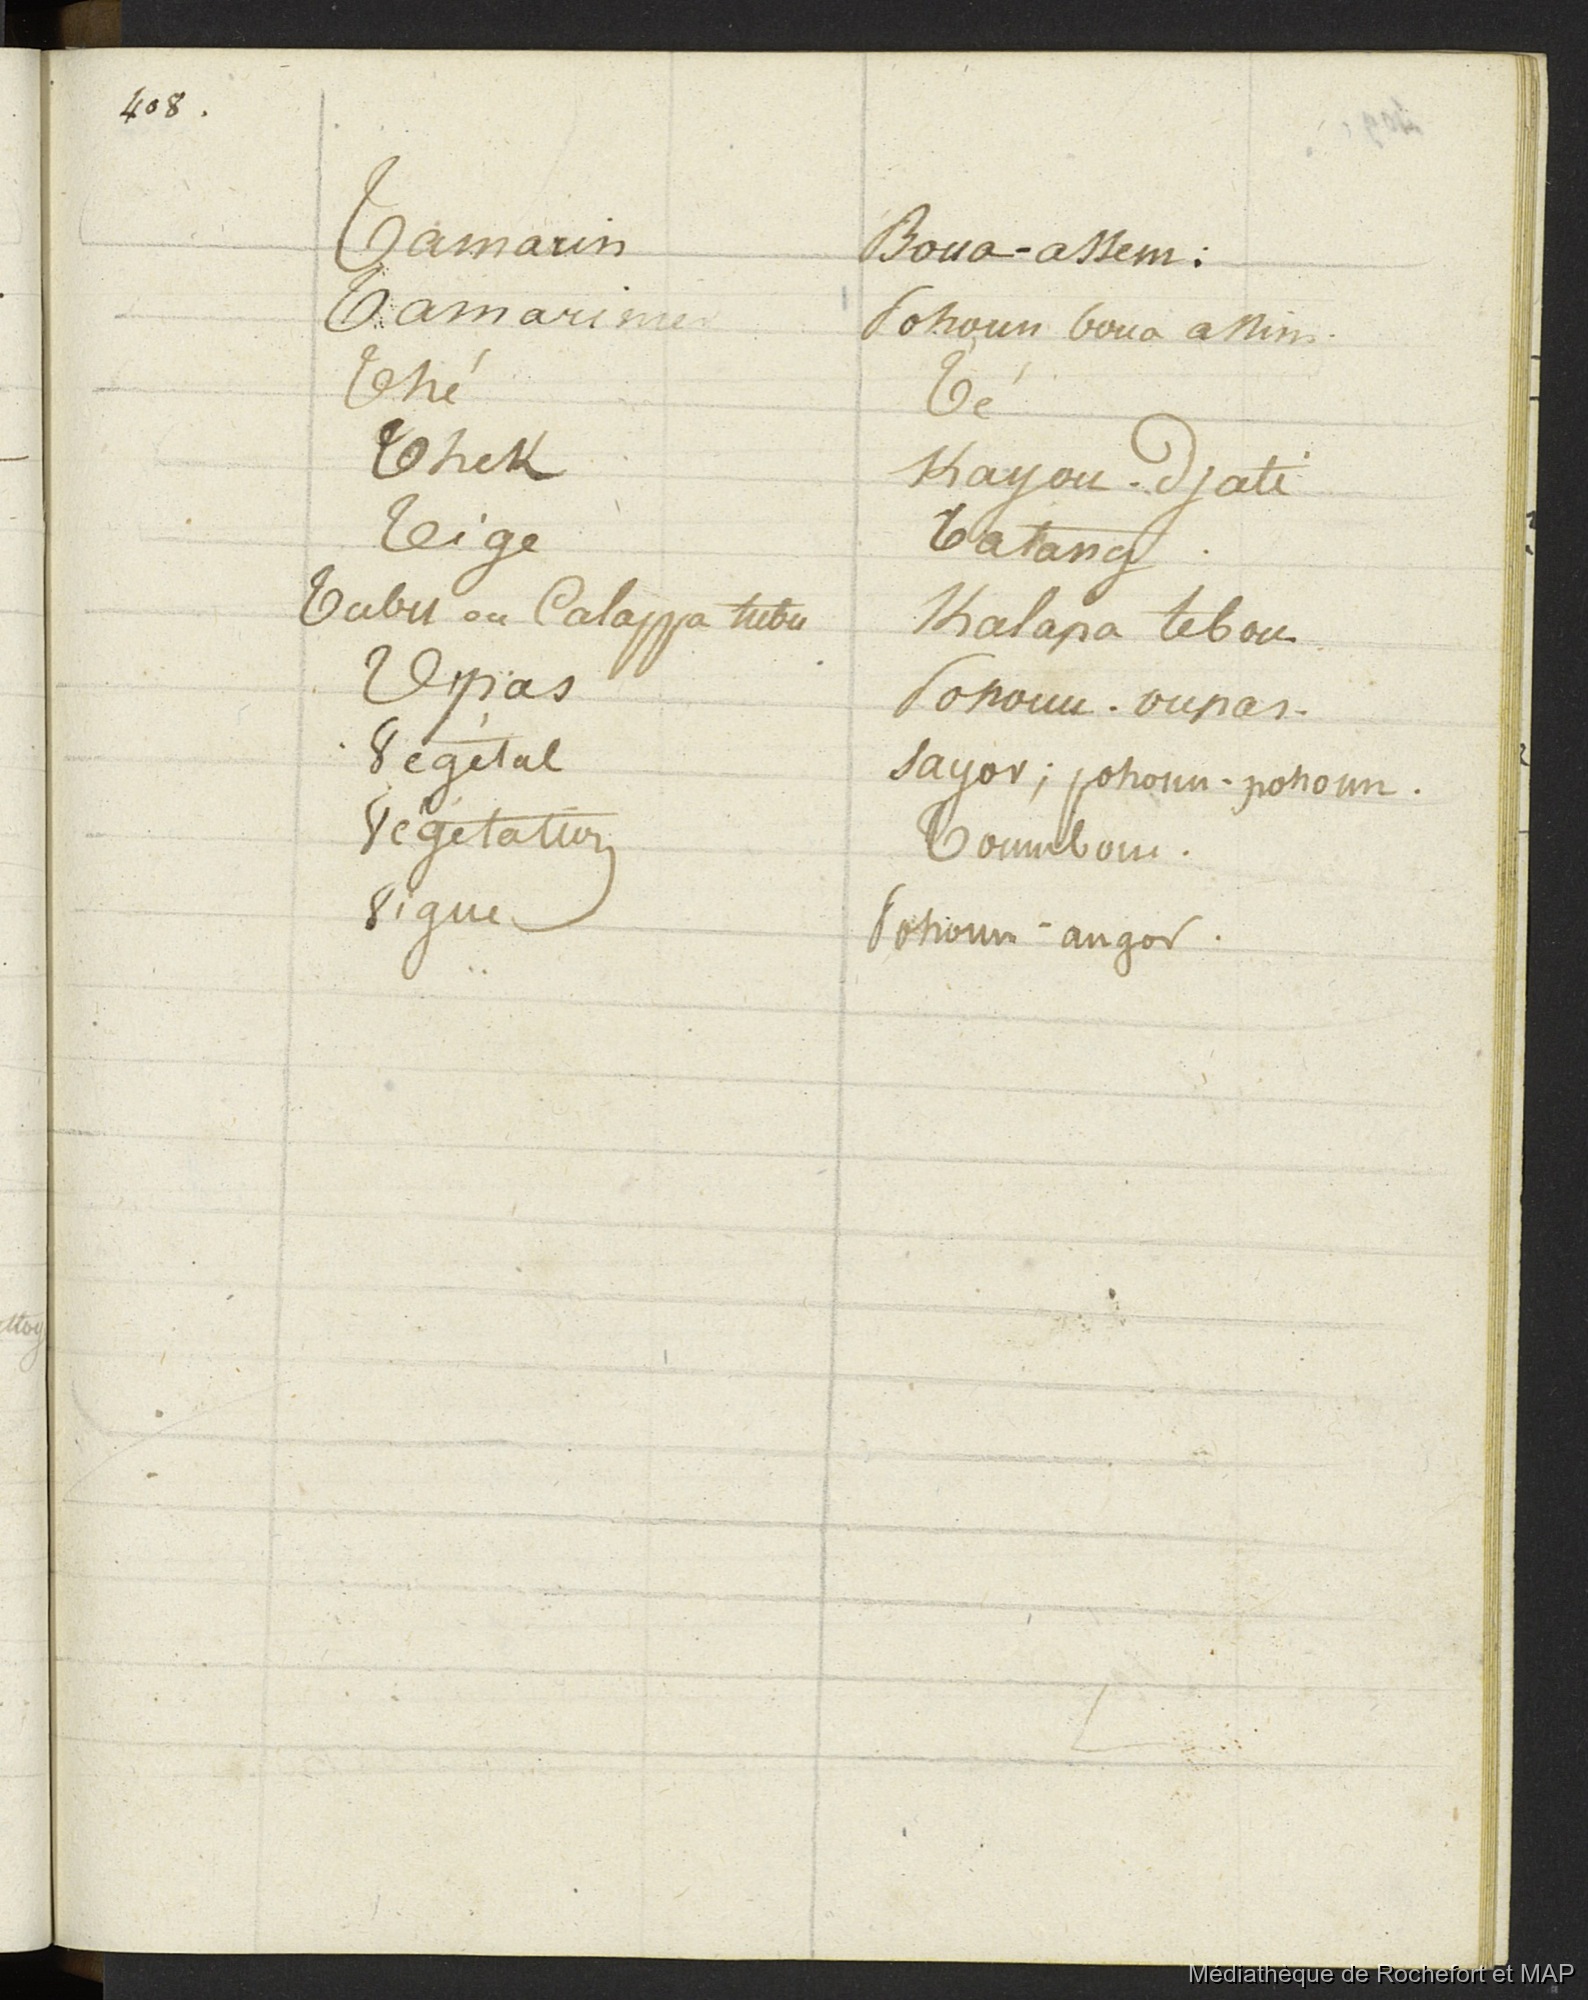 408.
Tamarin Boua-assem:
Tamarinier Pohoun boua assim.
Thé Té
Thek Kayou-Djati
Tige Batang.
Tubu ou Calappa tubu Kalapa tebou
Upas Pohoun-oupas.
Végétal Sayor; pohoun-pohoun.
Végétation Toumbou.
Vigne Pohoun-angor.
Médiathèque de Rochefort et MAP